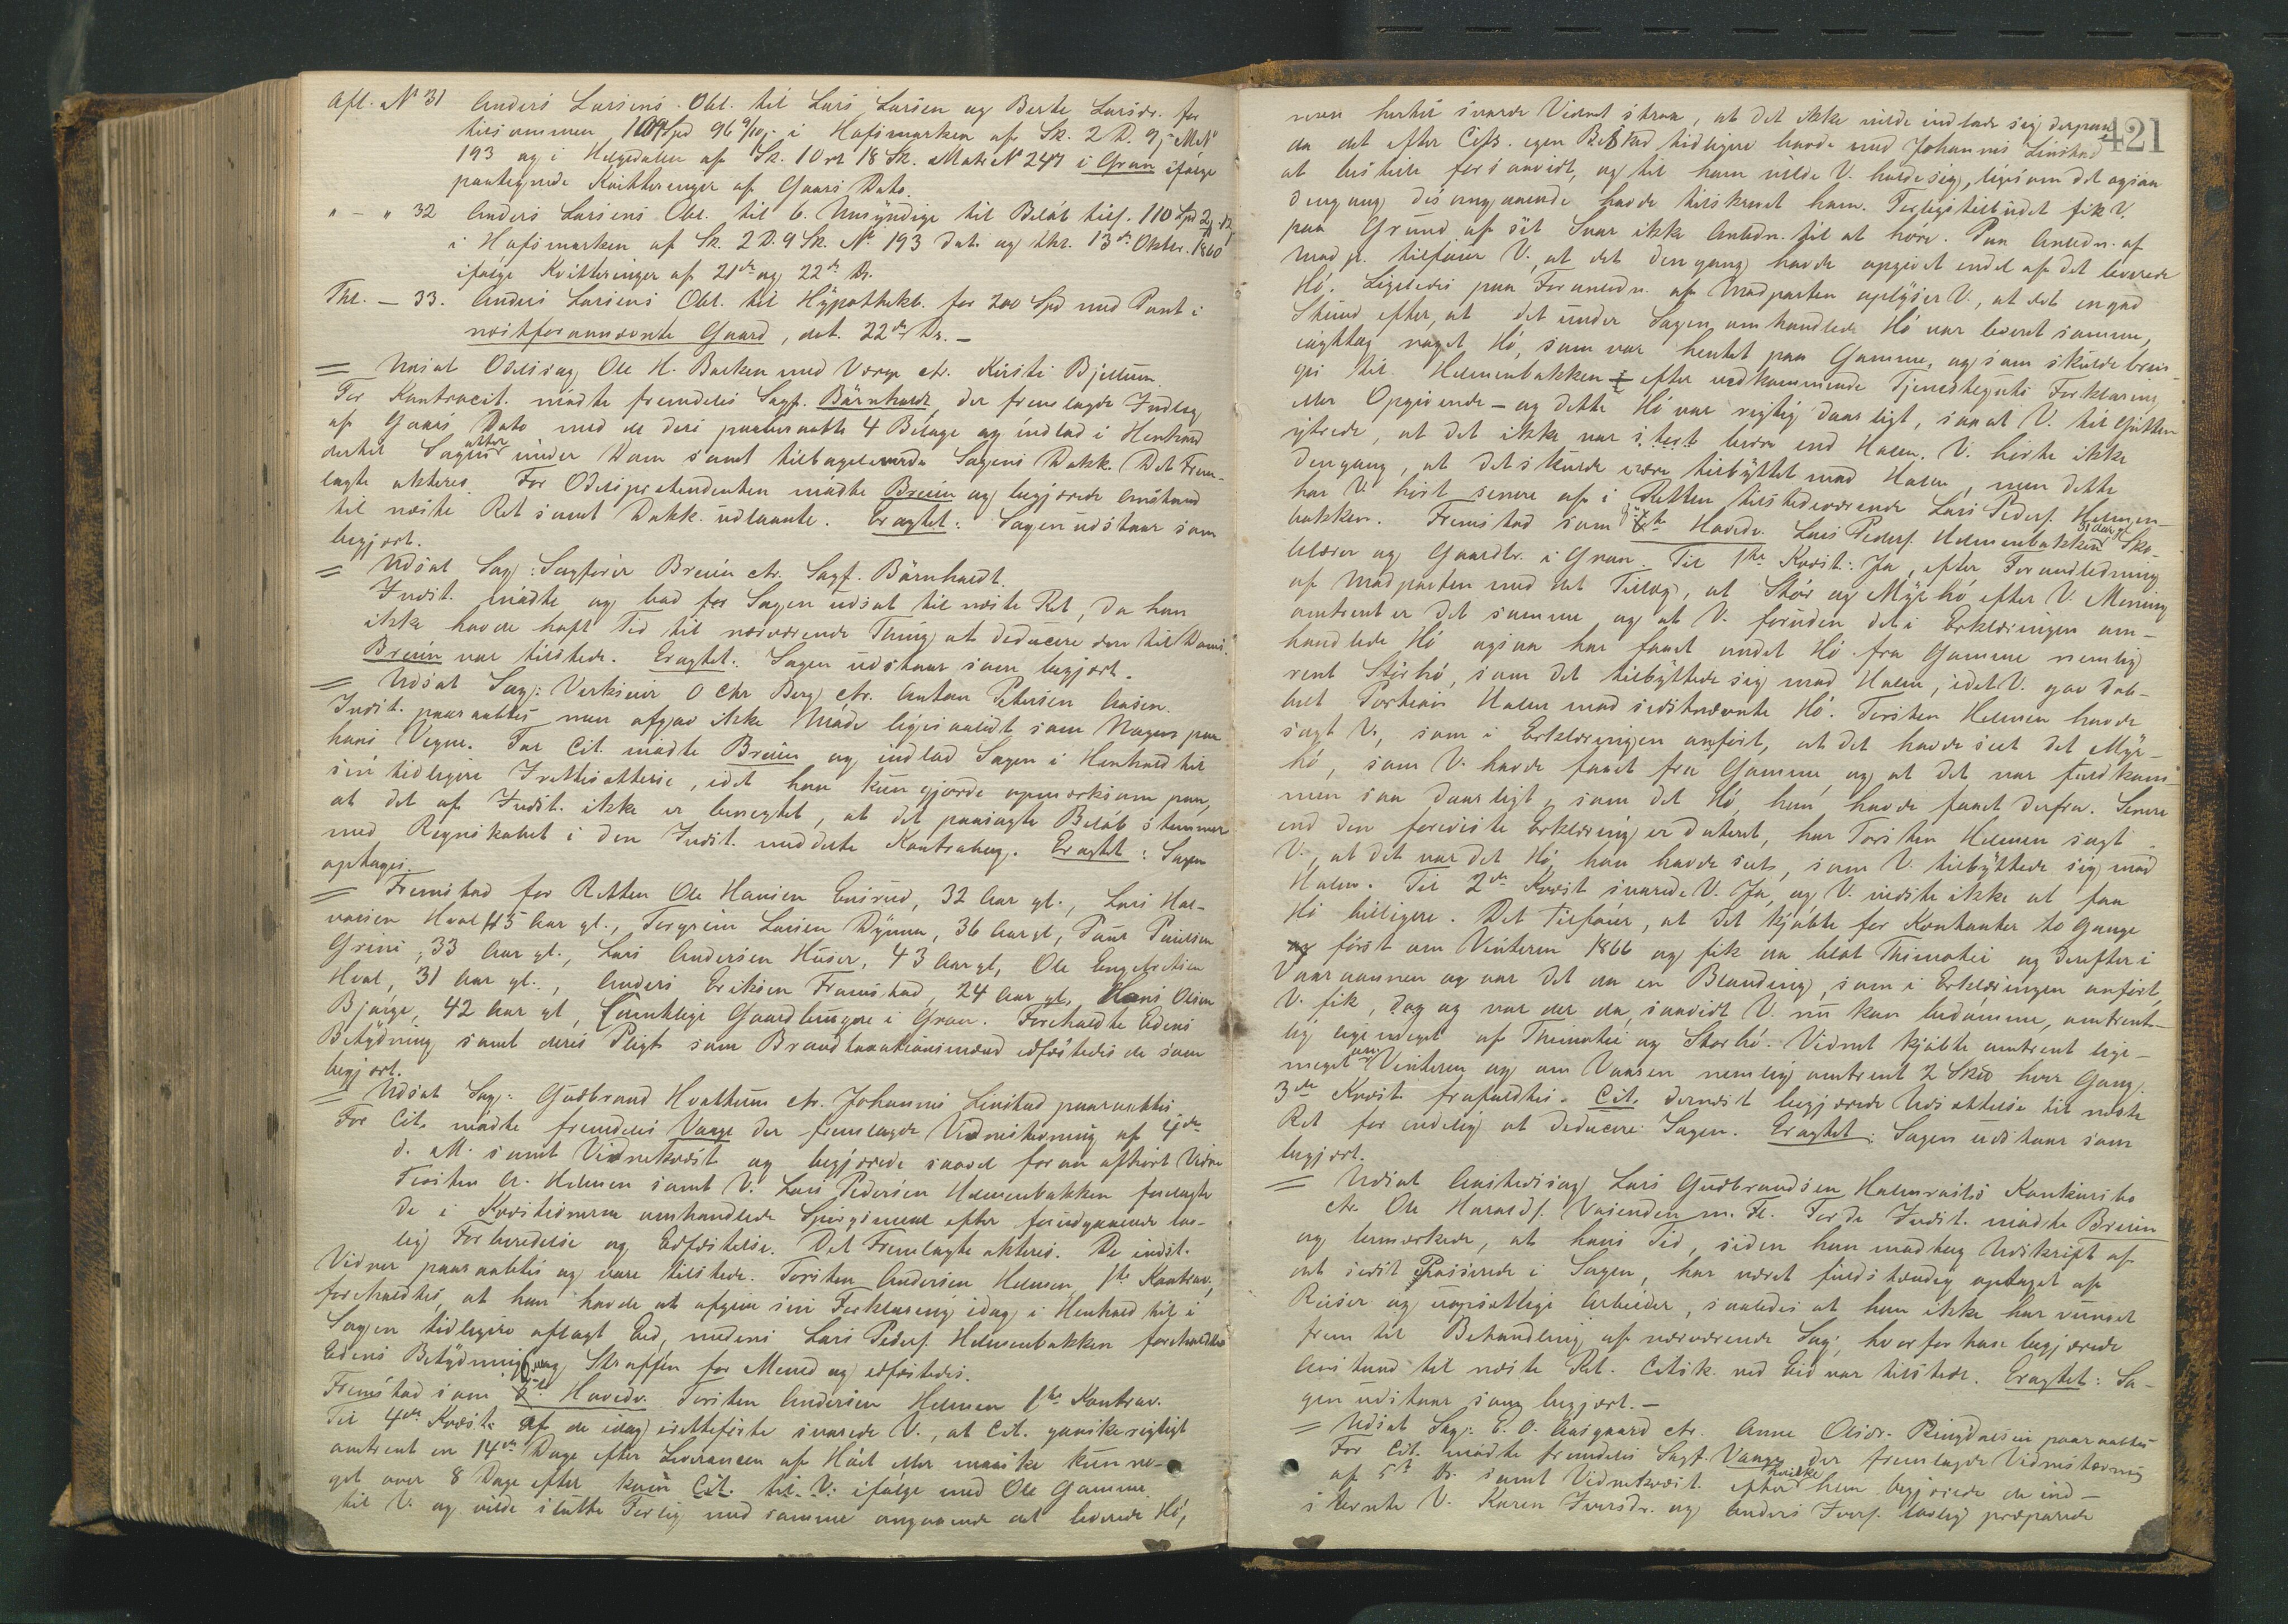 Afl. N° 31 Anders Larsens Obl. til Lars Larsen og Berte Larsdr. for
tilsammen 109 Spd 96 9/10 i Hofsmarken af Sk. 2 D. 9 Mat N°
193 og i Helgedalen af Sk. 10 18 Sk. Mat N° 247 i Gran ifølge
paategnede Kvitteringer af Gaars Dato.
" - " 32 Anders Larsens Obl. til 6. Umyndige til Beløb tils. 110 Spd
i Hofsmarken af Sk. 2 D. 9 Sk. N° 193 dat. og thl. 13de Oktbr. 1860
ifølge Kvitteringer af 21de og 22de Ds.
Thl. - 33. Anders Larsens Obl. til Hypothekb. for 200 Spd med Pant i
næstforannævnte Gaard, dat. 22de Ds. -
= Udsat Odelssag Ole H. Bakken med Værge ctr. Kirsti Bjellum.
For Kontracit. mødte fremdeles Sagf. Bärnholdt, der fremlagde Indlæg
af Gaars Dato med de deri paaberaabte 4 Bilage og indlod i Henhold
dertil Sagen atter under Dom samt tilbageleverede Sagens Dokk. Det Frem-
lagte akteres. For Odelsprætendenten mødte Breien og begjærede Anstand
til næste Ret samt Dokk. udlaante. Eragtet: Sagen udstaar som
begjært.
= Udsat Sag: Sagfører Breien ctr. Sagf. Bärnholdt.
Indst. mødte og bad Sagen udsat til næste Ret, da han
ikke havde haft Tid til nærværende Thing at deducere den til Doms.
Breien var tilstede. Eragtet: Sagen udstaar som begjært.
= Udsat Sag: Verkseier O Chr Berg ctr. Anton Petersen Aasen.
Indst. paaraabtes men afgav ikke Møde ligesaalidt som Nogen paa
hans Vegne. For Cit. mødte Breien og indlod Sagen i Henhold til
sin tidligere Irettesættelse, idet han kun gjorde opmærksom paa,
at det af Indst. ikke er benegtet, at det paasagte Beløb stemmer
med Regnskabet i den Indst. meddelte Kontrabog. Eragtet: Sagen
optages.
= Fremstod for Retten Ole Hansen Ensrud, 32 Aar gl., Lars Hal-
vorsen Hval 45 Aar gl., Torgrim Larsen Dynna, 36 Aar gl, Paul Paulsen
Grini, 33 Aar gl., Lars Andersen Huser, 43 Aar gl, Ole Engebretsen
Hval, 31 Aar gl., Anders Eriksen Framstad, 24 Aar gl, Hans Olsen
Bjørge, 42 Aar gl, samtlige Gaardbrugere i Gran. Foreholdte Edens
Betydning samt deres Pligt som Brandtaxationsmænd edfæstedes de som
begjært.
= Udsat Sag: Gudbrand Hvattum ctr. Johannes Linstad paaraabtes.
For Cit. mødte fremdeles Vange der fremlagde Vidnestævning af 4de
d. M. samt Vidnekvæst og begjærede saavel foran afhørt Vidne
Torsten A. Helmen samt V. Lars Pedersen Helmenbakken forelagte
de i Kvæstionerne omhandlede Spørgsmaal efter forudgaaende lov-
lig Forberedelse og Edfæstelse. Det Fremlagte akteres. De indst.
Vidner paaraabtes og vare tilstede. Torsten Andersen Helmen, 1ste Kontrav.
foreholdtes, at han havde at afgive sin Forklaring idag i Henhold til i
Sagen tidligere aflagt Eed, medens Lars Peders. Helmenbakken foreholdtes
Edens Betydning og Straffen for Meneed og edfæstedes.
Fremstod som Hovedv. Torsten Andersen Helmen 1ste Kontrav.
Til 4de Kvæst. af de idag iretteførte svarede V., at Cit. ganske rigtigt
omtrent en 14de Dage efter Leverancen af Høet eller maaske kun no-
get over 8 Dage efter kom Cit. til V. ifølge med Ole Gamme
til V. og vilde slutte Forlig med samme angaaende det leverede Hø,
421
men hertil svarede Vidnet strax, at det ikke vilde indlade sig derpaa
da det efter Cits. egen tidligere havde med Johannes Linstad
at bestille forsaavidt, og til ham vilde V. holde sig, ligesom det ogsaa
dengang desangaaende havde tilskrevet ham. Forligstilbudet fik V.
paa Grund af sit Svar ikke Anledn. til at høre. Paa Anledn. af
Modp. tilføier V., at det dengang havde opgivet endel af det leverede
Hø. Ligeledes paa Foranledn. af Modparten oplyser V., at det en god
Stund efter, at det under Sagen omhandlede Hø var leveret samme,
iagttog noget Hø, som var hentet paa Gamme, og som skulde brin-
ges til Helmenbakken efter vedkommende Tjenesteguts Forklaring
eller Opgivende - og dette Hø var rigtig daarligt, saa at V. til Gutten
ytrede, at det ikke var stort bedre end Halm. V. hørte ikke
dengang, at det skulde være tilbyttet mod Halm, men dette
har V. hørt senere af i Retten tilstedeværende Lars Peders. Helmen-
bakken. Fremstod som Hovedv. Lars Peders. Helmenbakken Sko-
lelærer og Gaardbr. i Gran. Til 1ste Kvæst: Ja, efter Foranledning
af Modparten med det Tillæg, at Stør og Myrhø efter V. Mening
omtrent er det samme og at V. foruden det i Erklæringen om-
handlede Hø ogsaa har faaet andet Hø fra Gamme nemlig
rent Størhø, som det tilbyttede sig mod Halm, idet V. gav dob-
belt Portion Halm mod sidstnævnte Hø. Torsten Helmen havde
sagt V., som i Erklæringen anført, at det havde seet det Myr-
hø, som V. havde faaet fra Gamme og at det var fuldkom-
men saa daarligt, som det Hø, han havde faaet derfra. Senere
end den foreviste Erklæring er dateret, har Torsten Helmen sagt
V., at det var det Hø, han havde seet, som V. tilbyttede sig mod
Halm. Til 2de Kvæst svarede V. Ja, og V. vidste ikke at faa
Hø billigere. Det Tilføier, at det kjøbte for Kontanter to Gange
først om Vinteren 1866 og fik da blot Thimothei og derefter i
Vaaraannen og var det da en Blanding, som i Erklæringen anført,
V. fik, og var der da, saavidt V. nu kan bedømme, omtrent-
lig ligemeget af Thimothei og Størhø. Vidnet kjøbte omtrent lige-
meget om Vinteren og om Vaaren nemlig omtrent 2 Skd hver Gang.
3de Kvæst frafaldtes. Cit. dernæst begjærede Udsættelse til næste
Ret for endelig at deducere Sagen. Eragtet: Sagen udstaar som
begjært.
= Udsat Aastedssag Lars Gudbrandsen Halmrasts Konkursbo
ctr. Ole Haralds. Vasenden m. Fl. For de Indst. mødte Breien
og bemærkede, at hans Tid, siden han modtog Udskrift af
det sidst Passerede i Sagen, har været fuldstændig optaget af
Reiser og uopsættlige Arbeider, saaledes at han ikke har vundet
frem til Behandling af nærværende Sag, hvorfor han begjærede
Anstand til næste Ret. Citsk. ved Eid var tilstede. Eragtet: Sa-
gen udstaar som begjært. -
= Udsat Sag: E. O. Aasgaard ctr. Anne Olsdr. Ringdalseie paaraabtes
For Cit. mødte fremdeles Sagf. Vange, der fremlagde Vidnestævning
af 5te Ds. samt Vidnekvæst. efter hvilke han begjærede de ind-
stevnte V. Karen Iversdr. og Anders Ivers. lovlig præparede